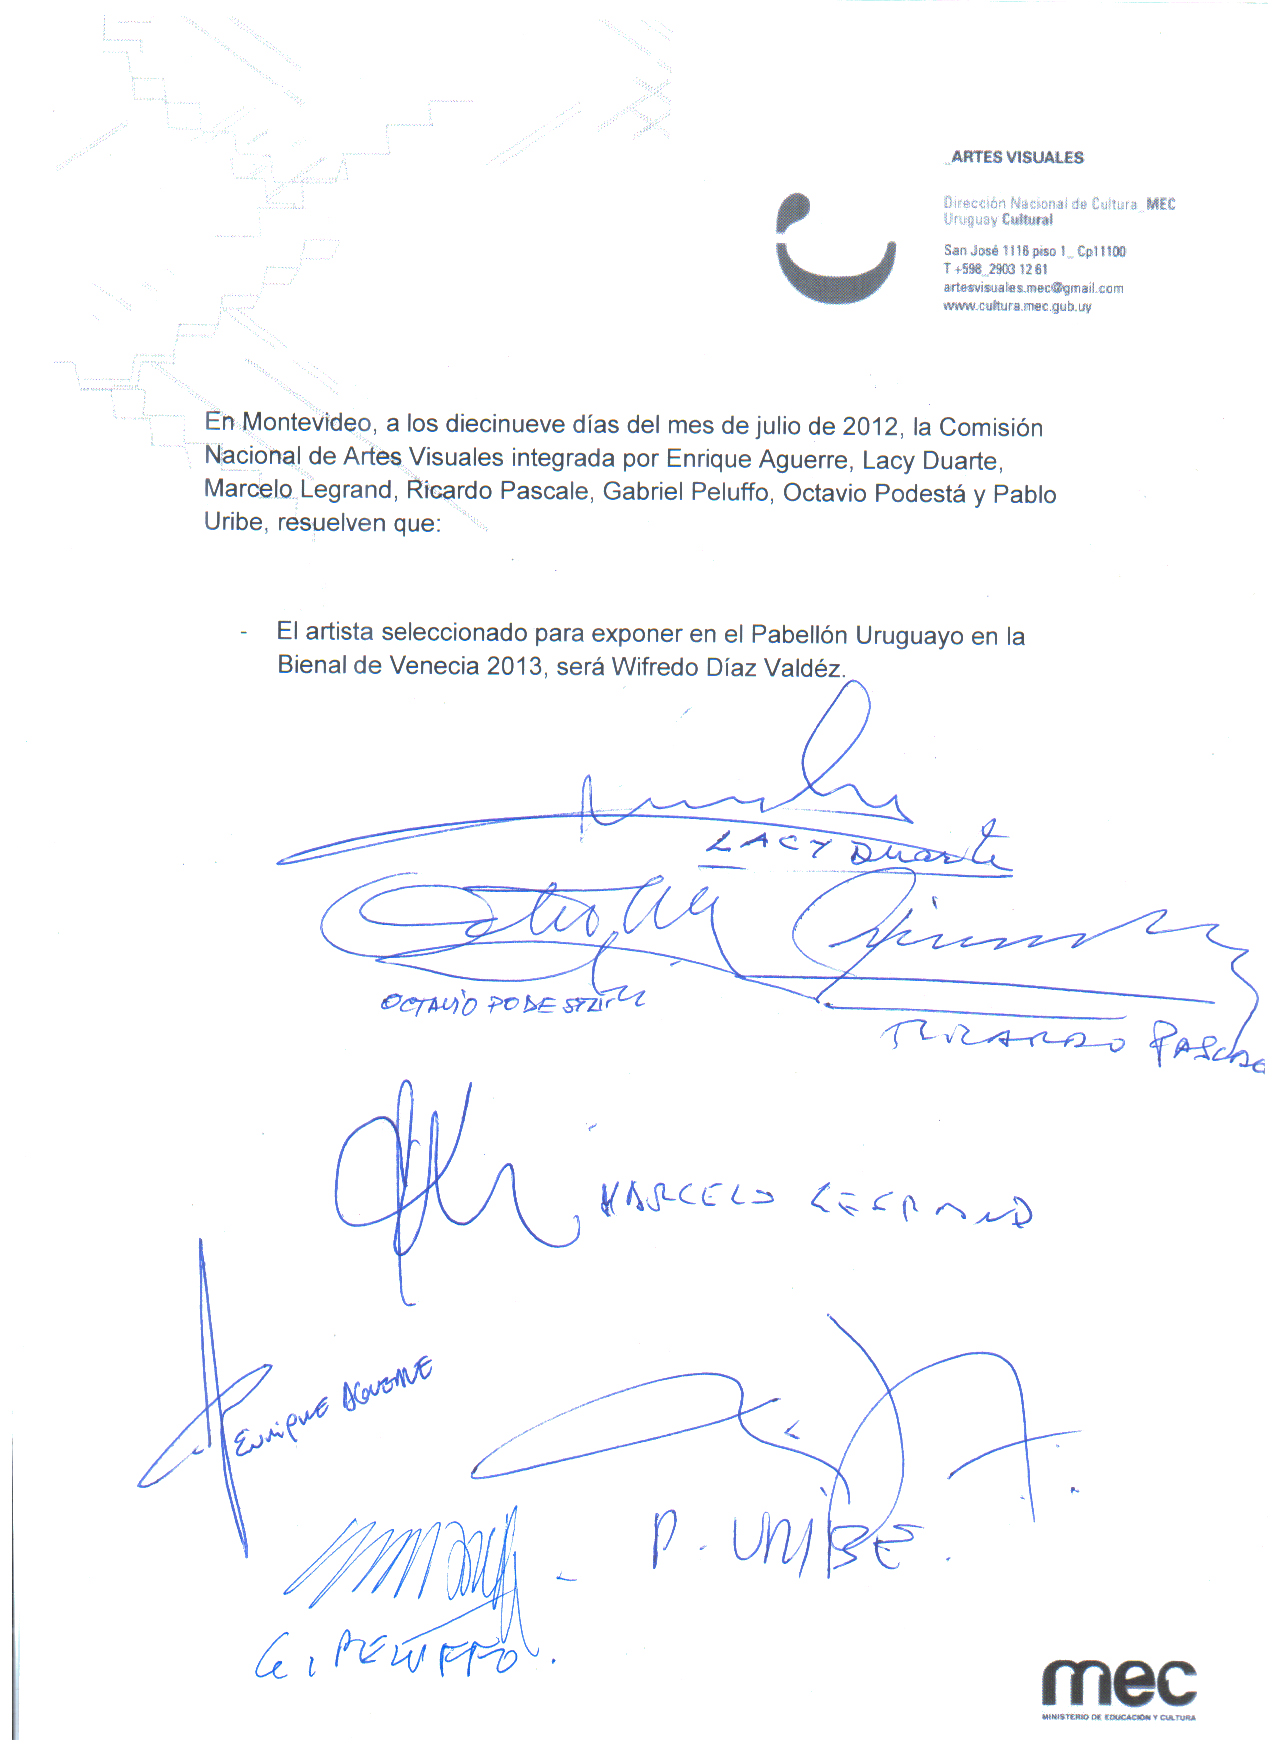 _ARTES VISUALES
Dirección Nacional de Cultura_MEC
Uruguay Cultural
San José 1116 piso 1_ Cp11100
T +598_2903 12 61
artesvisuales.mec@gmail.com
www.cultura.mec.gub.uy
En Montevideo, a los diecinueve días del mes de julio de 2012, la Comisión
Nacional de Artes Visuales integrada por Enrique Aguerre, Lacy Duarte,
Marcelo Legrand, Ricardo Pascale, Gabriel Peluffo, Octavio Podestá y Pablo
Uribe, resuelven que:
- El artista seleccionado para exponer en el Pabellón Uruguayo en la
Bienal de Venecia 2013, será Wifredo Díaz Valdéz.
LACY Duarte
OCTAVIO PODESTÁ
RICARDO PASCALE
MARCELO LEGRAND
ENRIQUE AGUERRE
P. URIBE.
G. PELUFFO.
mec
MINISTERIO DE EDUCACIÓN Y CULTURA